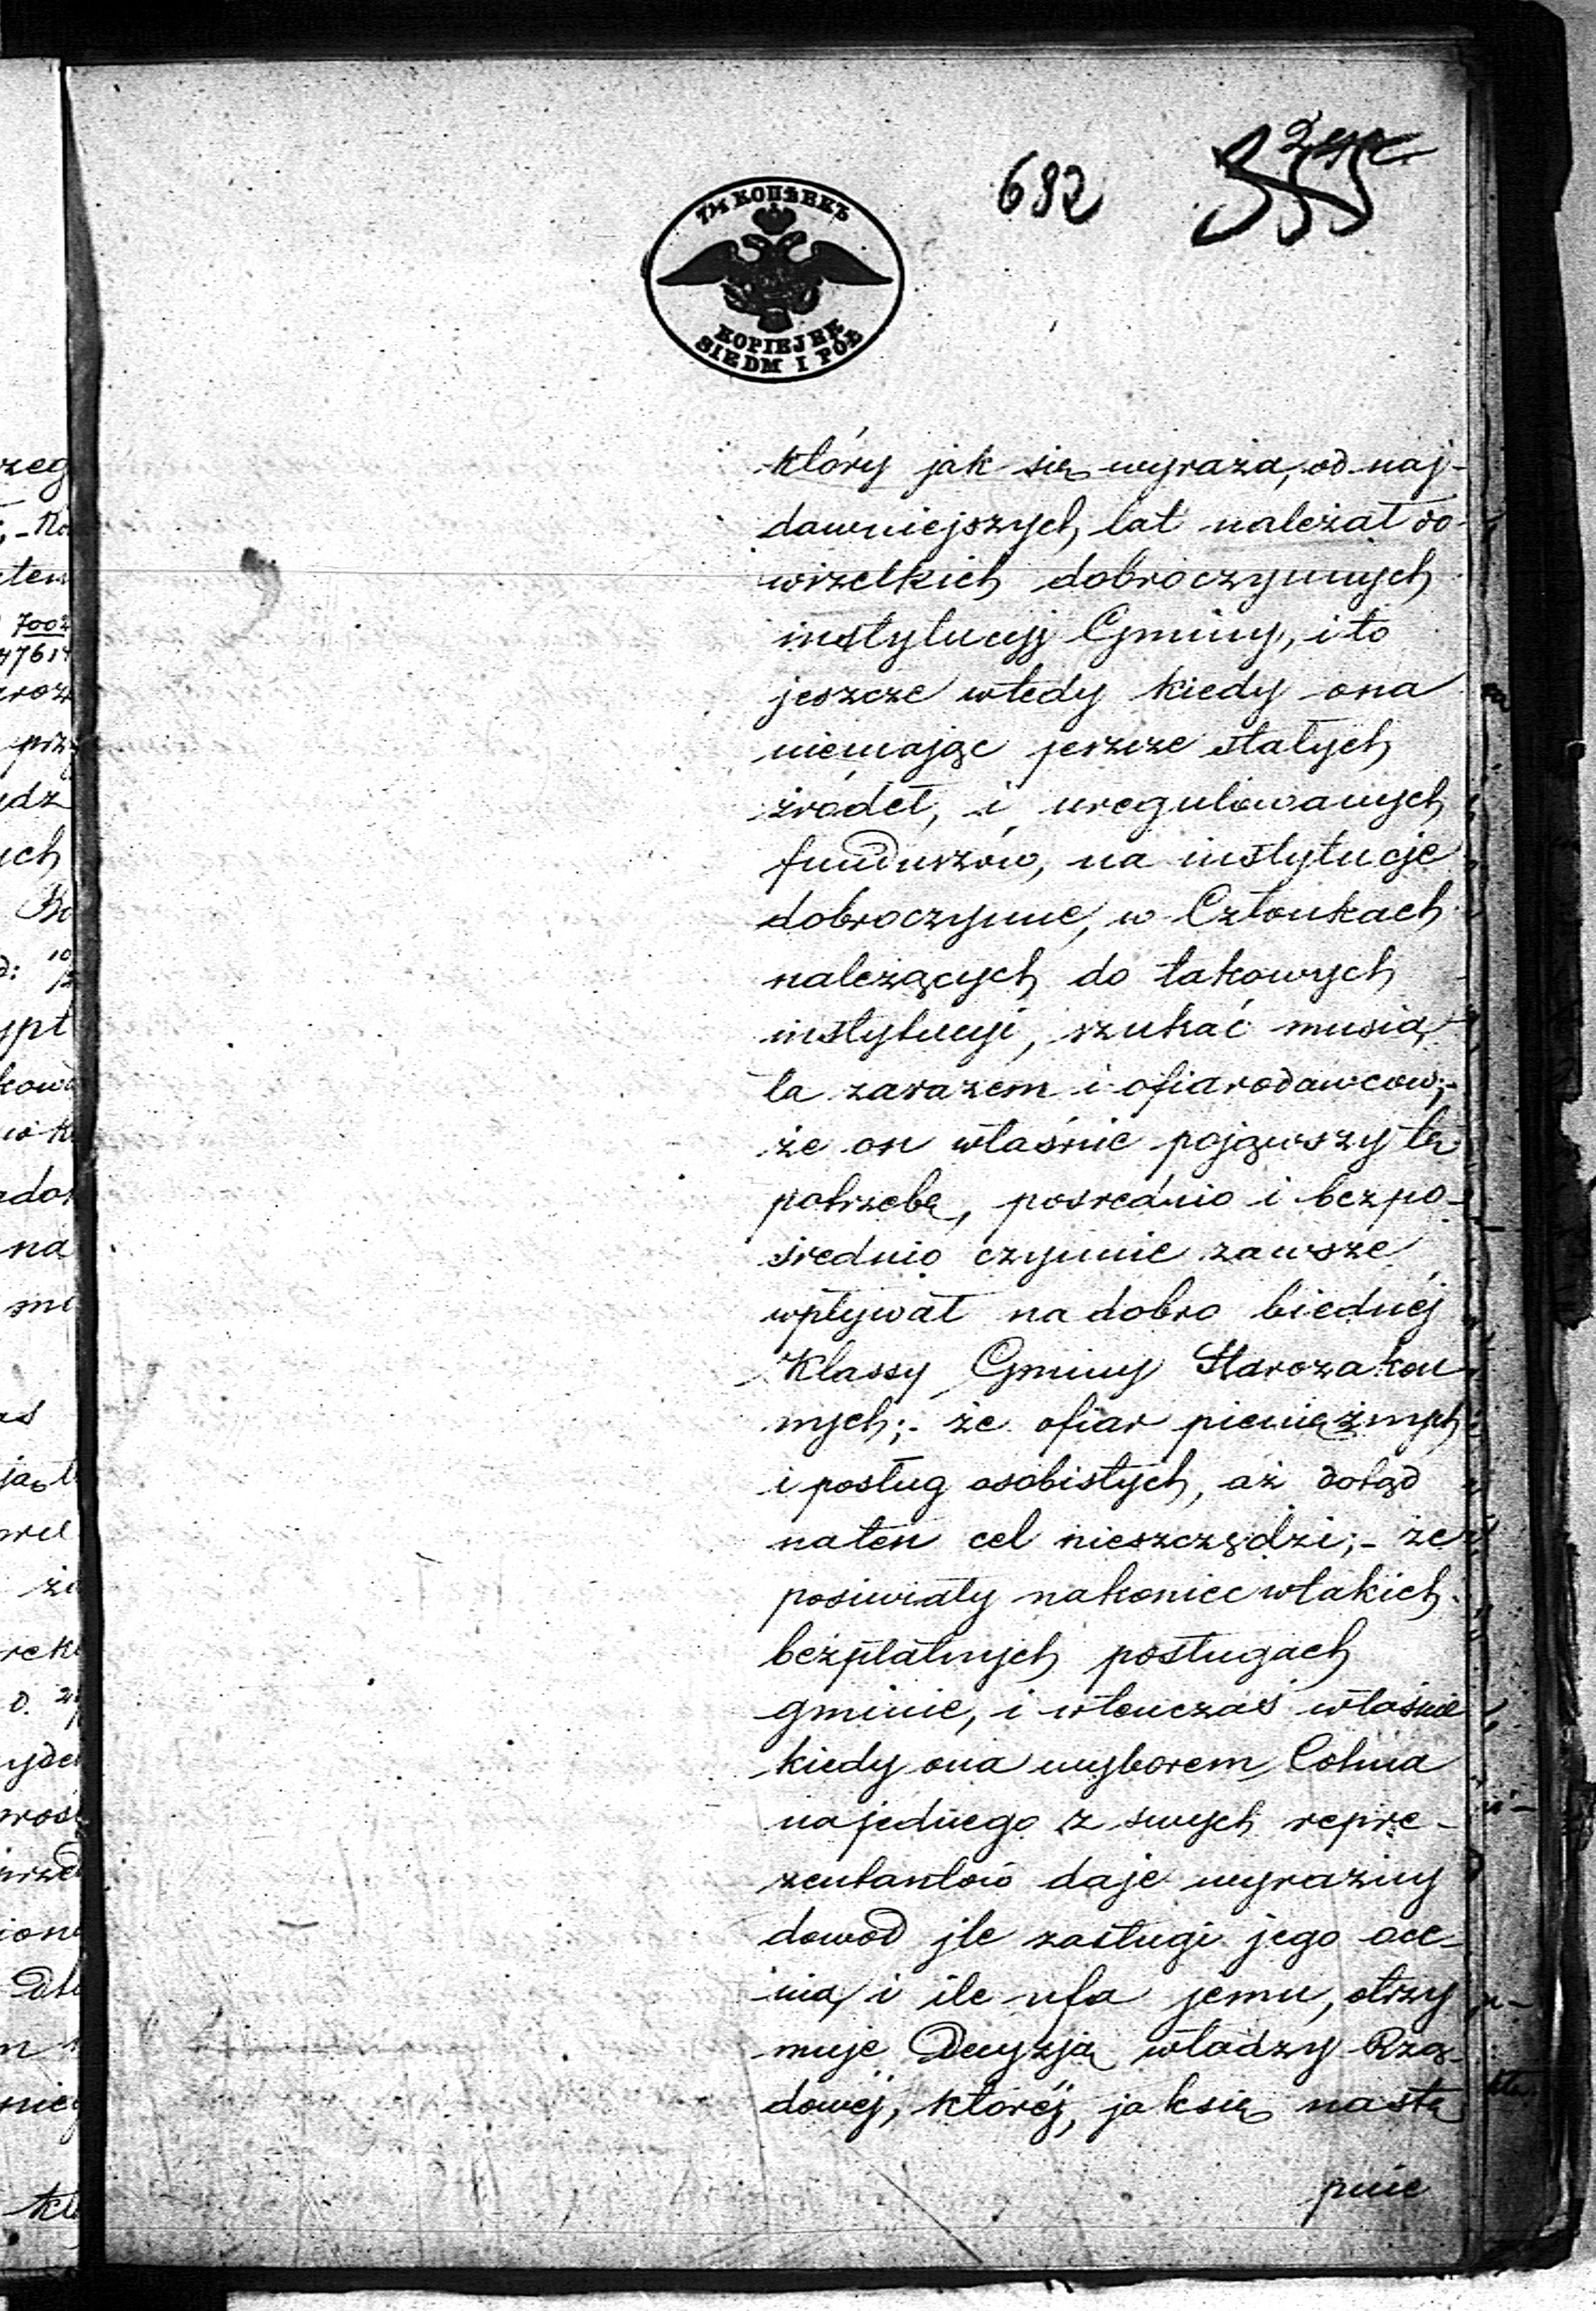 682
7½ КОПѢЕКЪ
KOPIEJEK
SIEDM I PÓŁ
który jak się wyraża, od naj-
dawniejszych lat należał do
wszelkich dobroczynnych
instytucyj Gminy, i to
jeszcze wtedy kiedy ona
niemając jeszcze stałych
źródeł, i uregulowanych
funduszów, na instytucje
dobroczynne, w Członkach
należących do takowych
instytucyi, szukać musia
ła zarazem i ofiarodawcow;-
że on właśnie pojąwszy tę
potrzebę, posrednio i bezpo-
średnio czynnie zawsze
wpływał na dobro biednéj
Klassy Gminy Starozakon
nych;- że ofiar pieniężnych
i posług osobistych, aż dotąd
naten cel nieszczędzi;- że
posiwiały nakoniec wtakich
bezpłatnych posługach
gminie, i wtenczas właśnie
kiedy ona wyborem Cohna
najednego z swych repre-
zentantów daje wyrazny
dowod jle zasługi jego oce-
nia, i ile ufa jemu, otrzy
muje Decyzją władzy Rzą-
dowéj, któréj, jaksię nastę
pnie